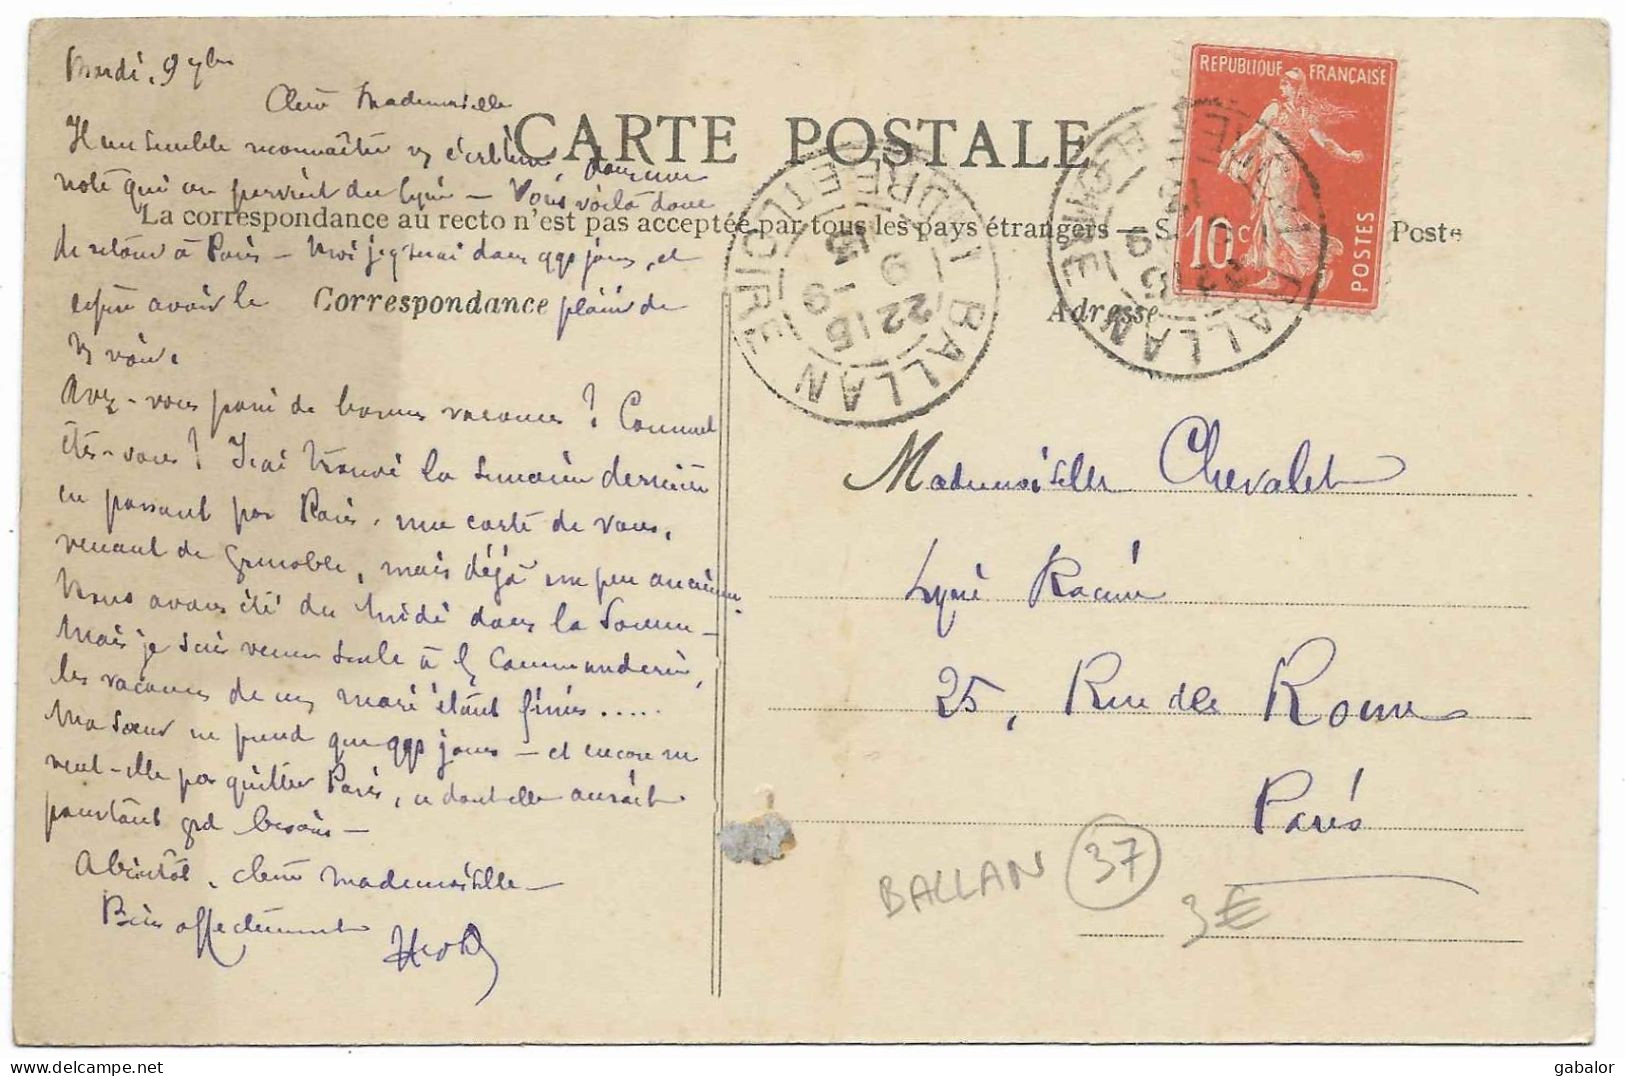 Mardi, 9 7bre
Chère Mademoiselle
CARTE POSTALE
Il me semble reconnaître v/ écriture dans une
note qui me parvient du lycée — Vous voilà donc
La correspondance au recto n'est pas acceptée par tous les pays étrangers — S. Poste
de retour à Paris — Moi j'y serai dans qqs jours, et
espère avoir le plaisir de
Correspondance
Adresse
vs voir.
Avez-vous joui de bonnes vacances ? Comment
êtes-vous ? J'ai trouvé la semaine dernière
en passant par Paris, une carte de vous,
venant de Grenoble, mais déjà un peu ancienne.
Nous avons été du Midi dans la Somme —
Mais je suis venue seule à la Commanderie,
les vacances de mon mari étant finies.....
Ma sœur ne prend que qqs jours — et encore ne
veut-elle pas quitter Paris, ce dont elle aurait
pourtant grd besoin —
A bientôt, chère Mademoiselle —
Bien affectueusement
REPUBLIQUE FRANÇAISE
10c
POSTES
BALLAN
INDRE ET LOIRE
22 15
9 - 9
13
BALLAN
Mademoiselle Chevalet
Lycée Racine
25, Rue de Rome
Paris
BALLAN 37
3€
gabalor